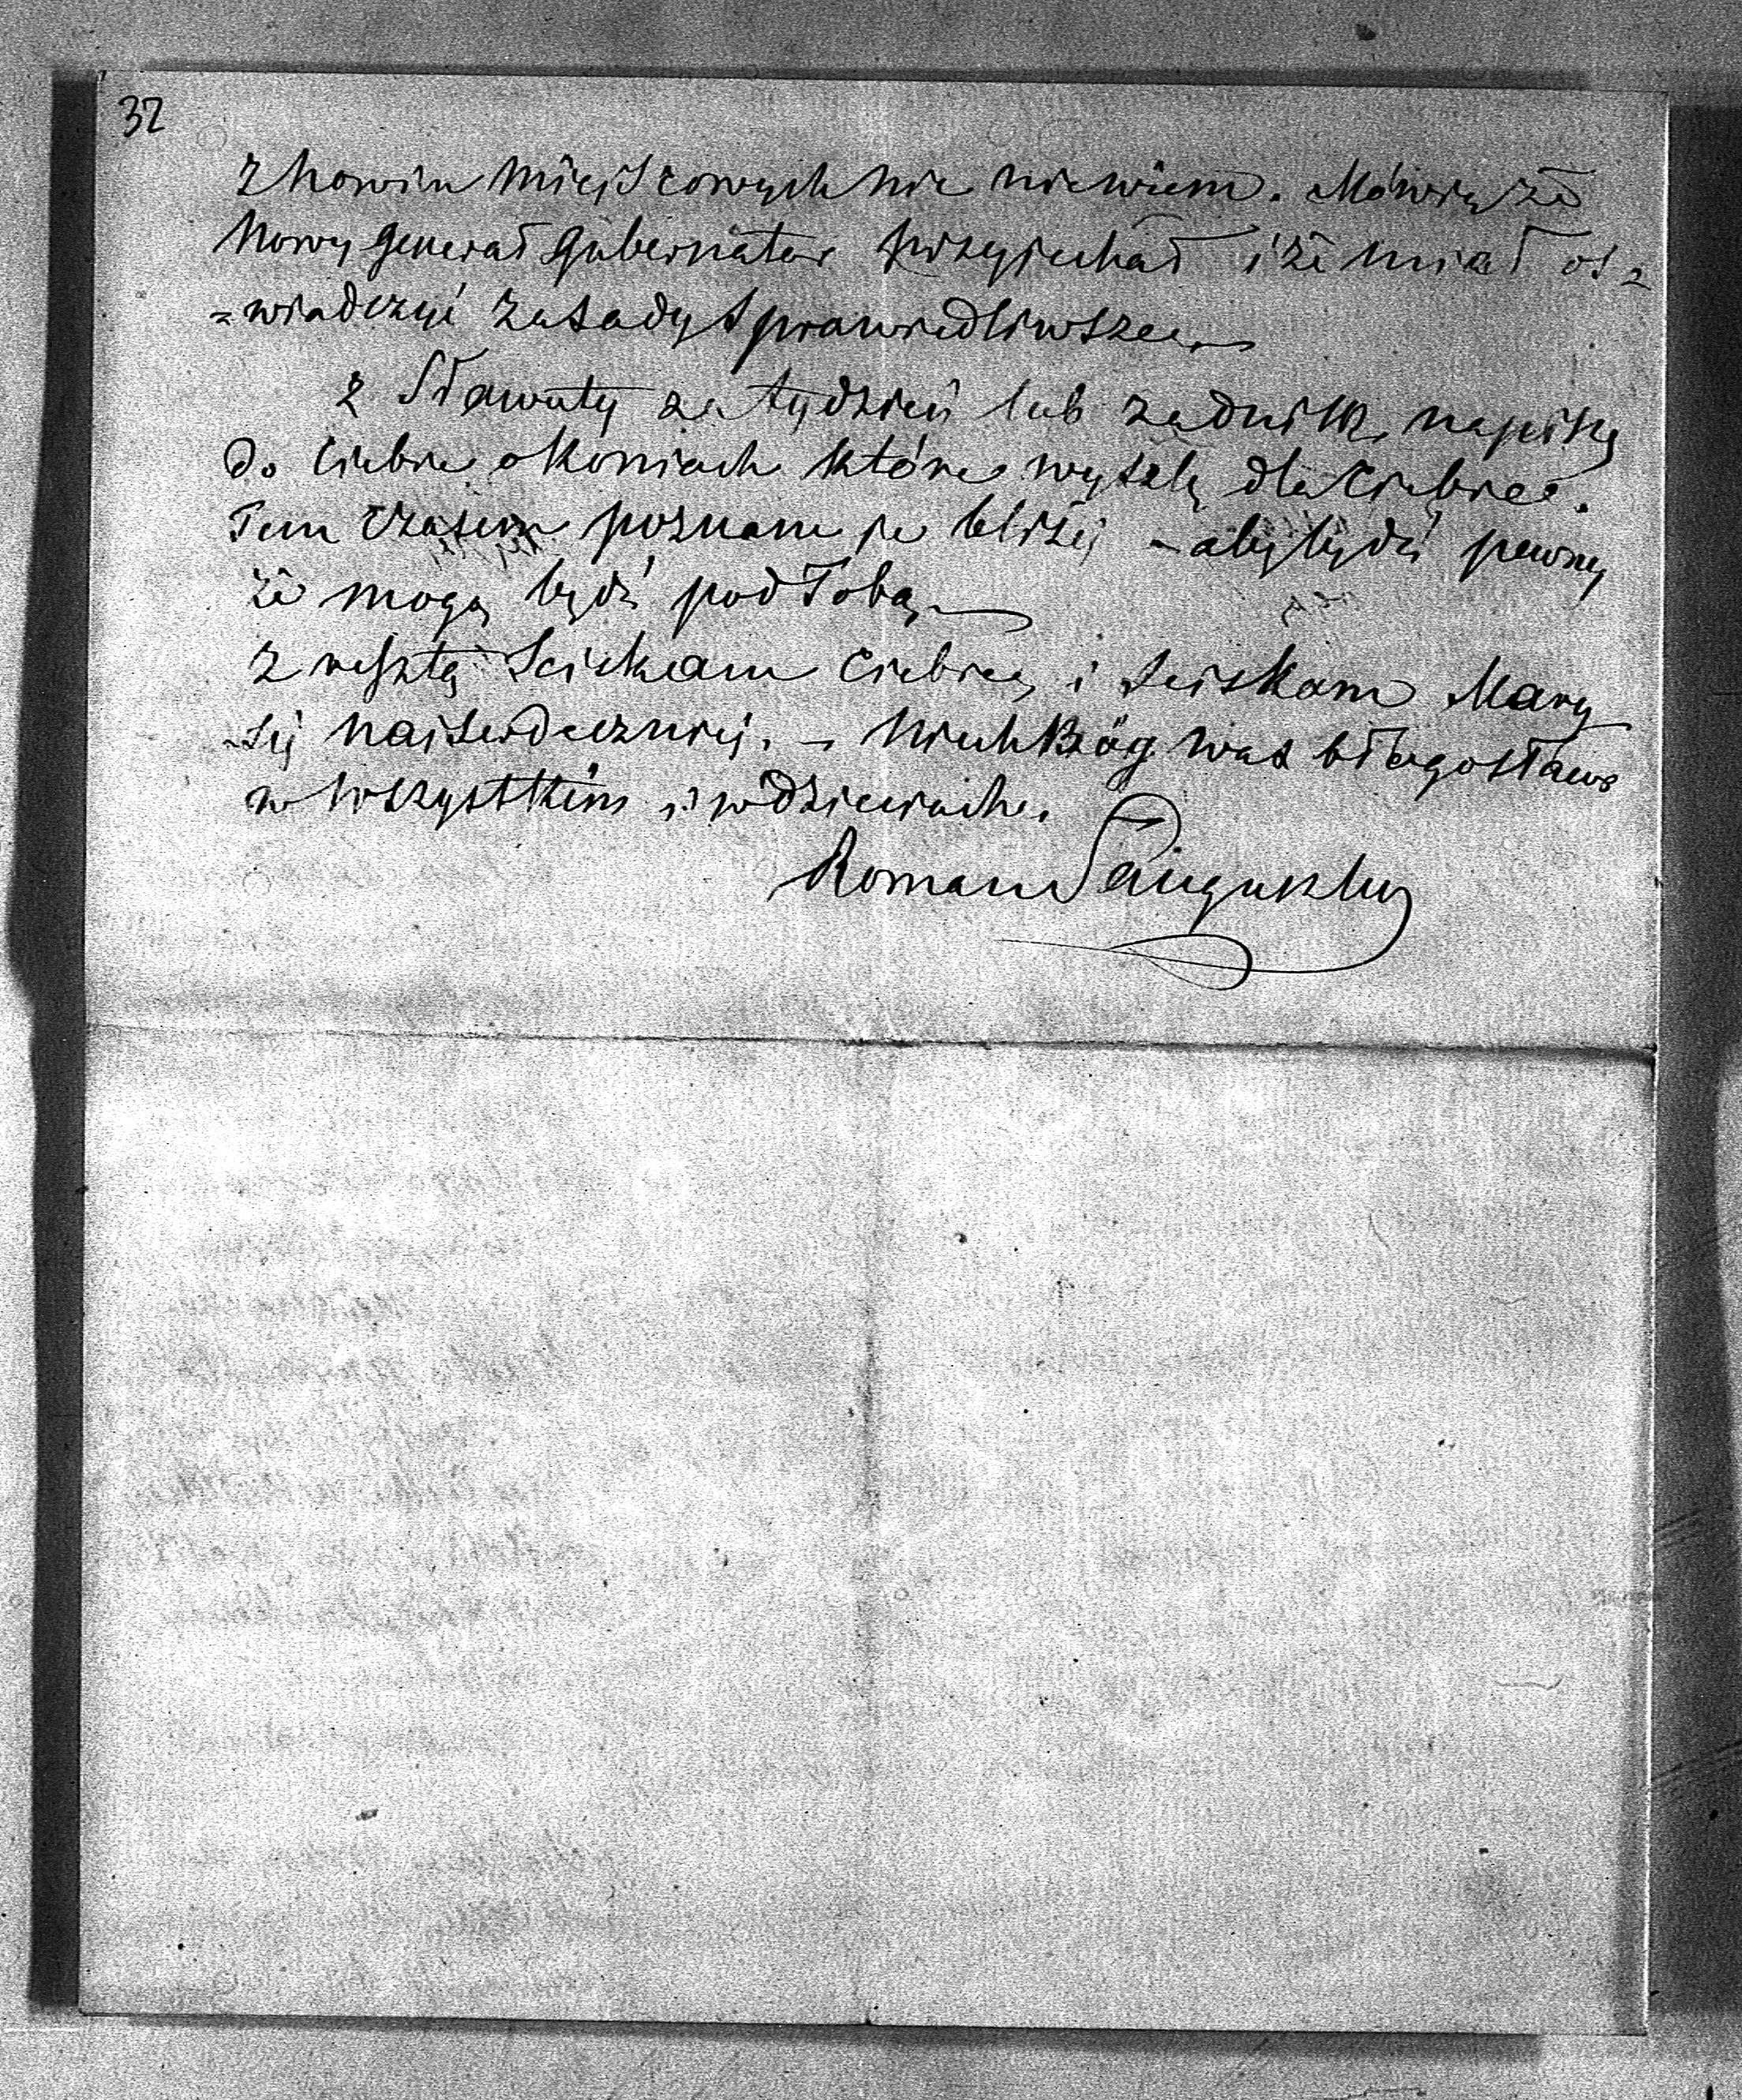 32
z nowin miejscowych nic niewiem. Mówią że
nowy Generał Gubernator przyjechał i że miał oś=
=wiadczyć zasady sprawiedliwsze
z Sławuty za tydzień lub
do Ciebie o koniach które wyszlę dla Ciebie.
Tem czasem poznam je bliżej - aby bydź pewny
że mogą bydź pod Tobą
z resztą sciskam Ciebie i sciskam Mary
się najserdeczniej. - Niech Bóg was błogosławi
w wszystkim i w dzieciach.
Roman Sanguszko